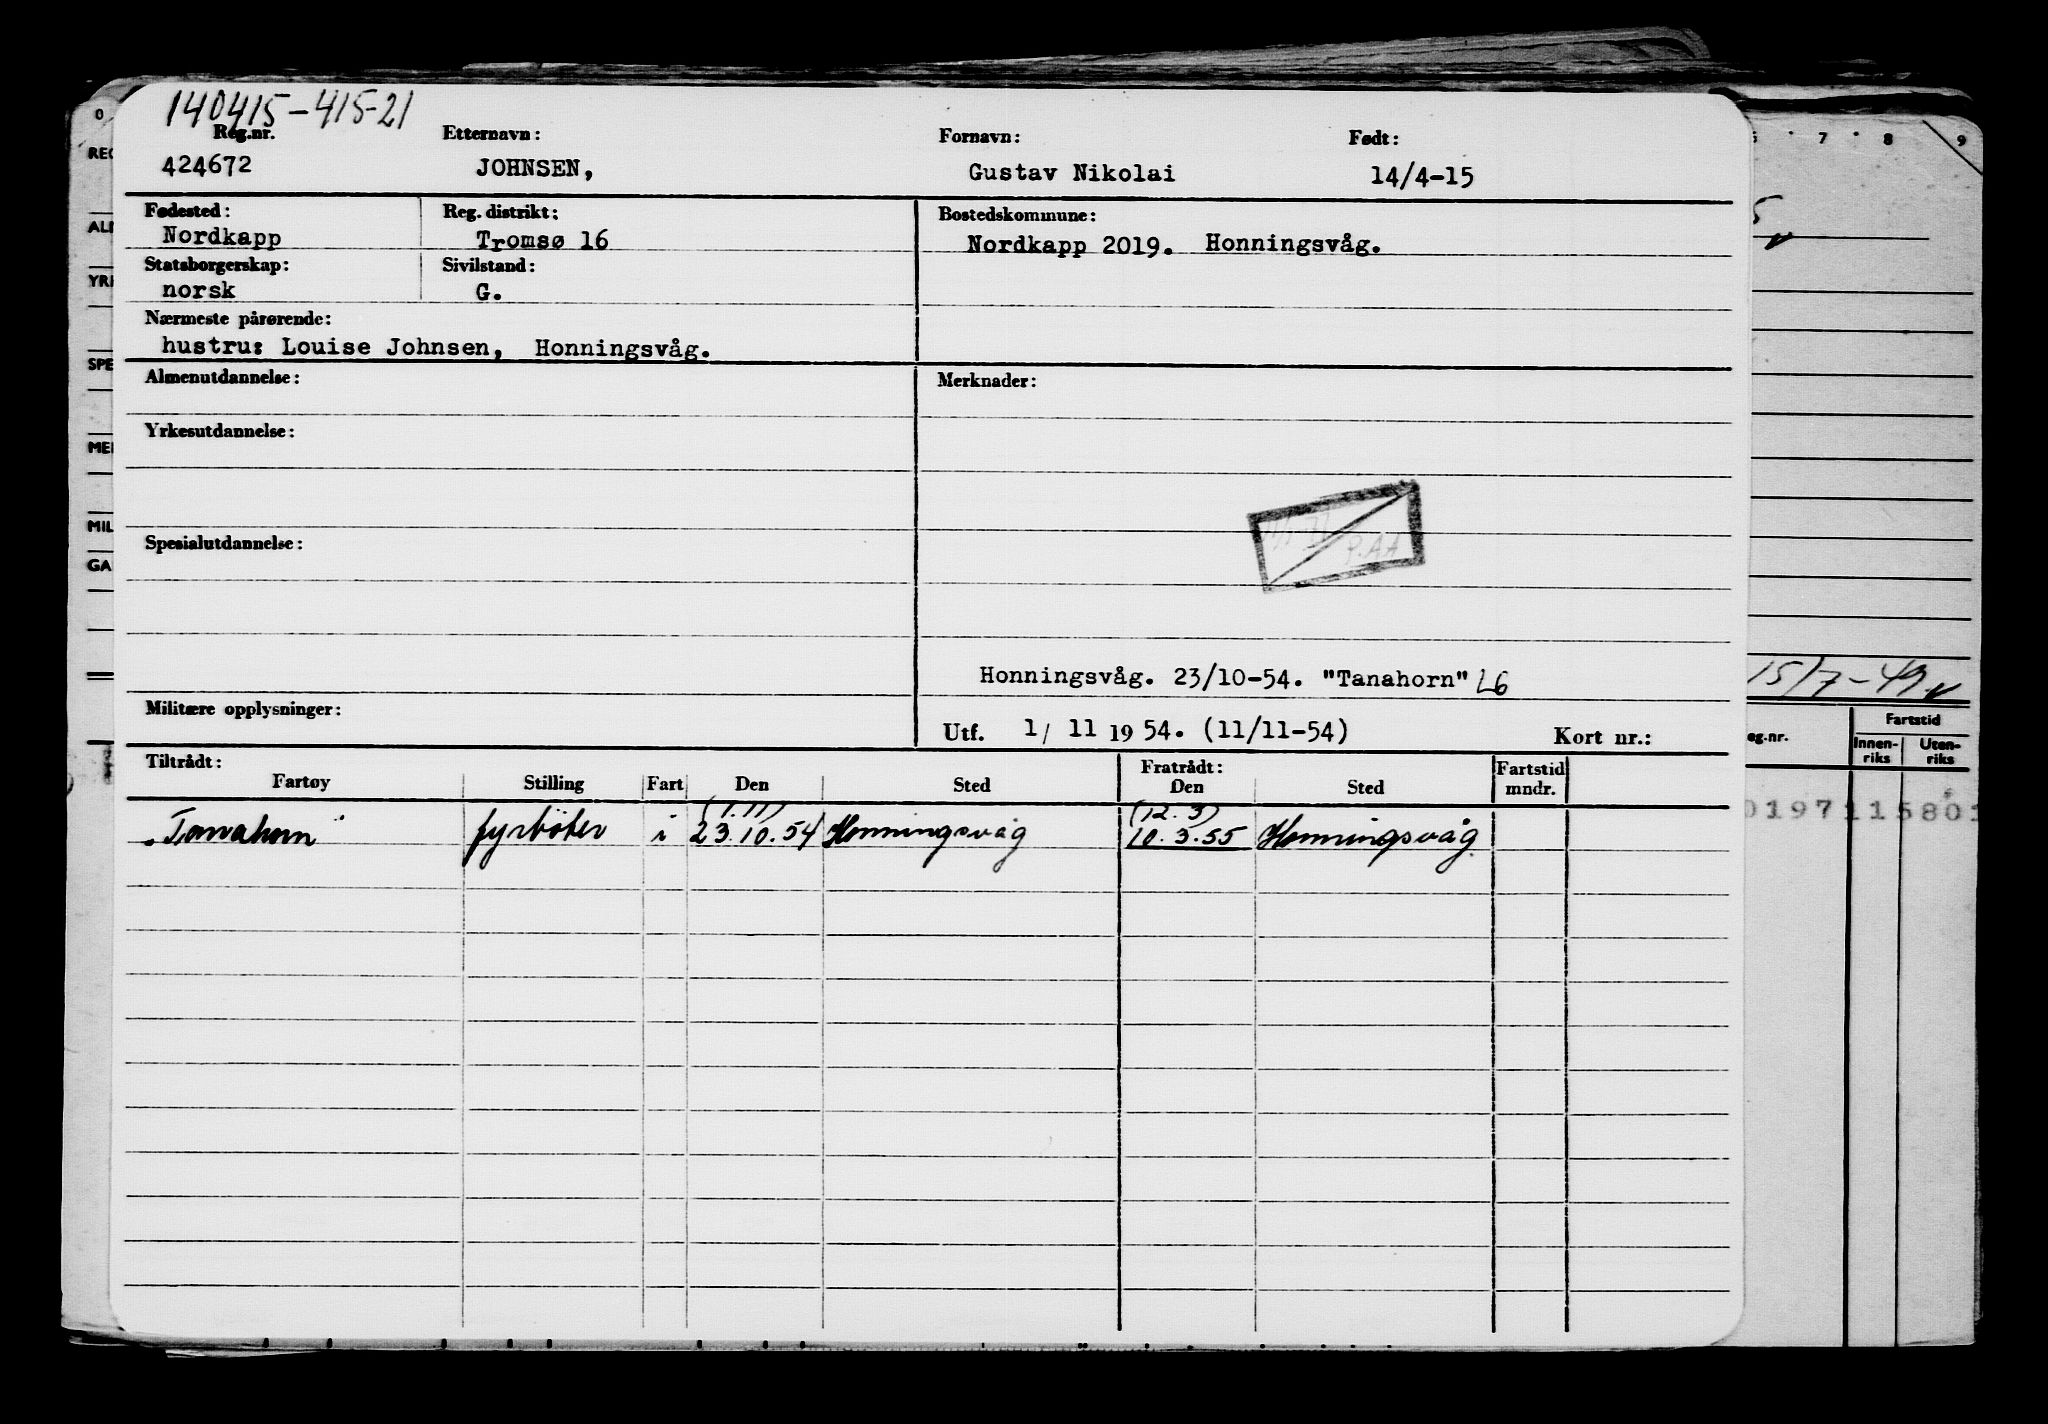 140415-415-21
Reg.nr. Etternavn: Fornavn: Født:
424672 JOHNSEN, Gustav Nikolai 14/4-15
Fødested: Reg. distrikt: Bostedskommune:
Nordkapp Tromsø 16 Nordkapp 2019. Honningsvåg.
Statsborgerskap: Sivilstand:
norsk G.
Nærmeste pårørende:
hustru: Louise Johnsen, Honningsvåg.
Almenutdannelse: Merknader:
Yrkesutdannelse:
P.AA
Spesialutdannelse:
Honningsvåg. 23/10-54. "Tanahorn" L6
Militære opplysninger:
Utf. 1/ 11 19 54. (11/11-54) Kort nr.:
Tiltrådt: Fratrådt:
Fartøy Stilling Fart Den Sted Den Sted Fartstid mndr.
(1.11) (12.3)
"Tanahorn" fyrbøter i 23.10.54 Honningsvåg 10.3.55 Honningsvåg
0
REG
ALM
YRK
SPE
MER
MIL
GA
7 8 9
5
15/7-49
eg.nr. Fartstid
Innen-riks Uten-riks
0197115801